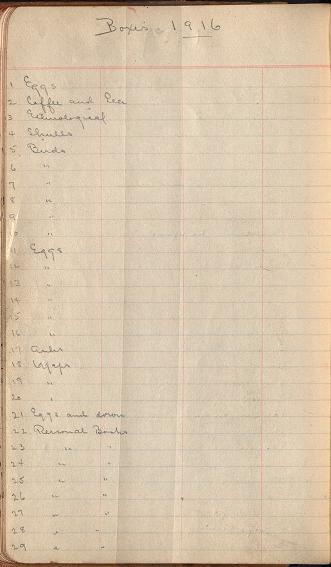 Boxes, 1916
1 Eggs
2 Coffee and
3 Ethnological
4 Skulls
5 Birds
6 "
7 "
8 "
9 "
10 "
11 Eggs
12 "
13 "
14 "
15 "
16 "
17
18
19 "
20 "
21 Eggs and down
22 Personal Books
23 " "
24 " "
25 " "
26 " "
27 " "
28 " "
29 " "